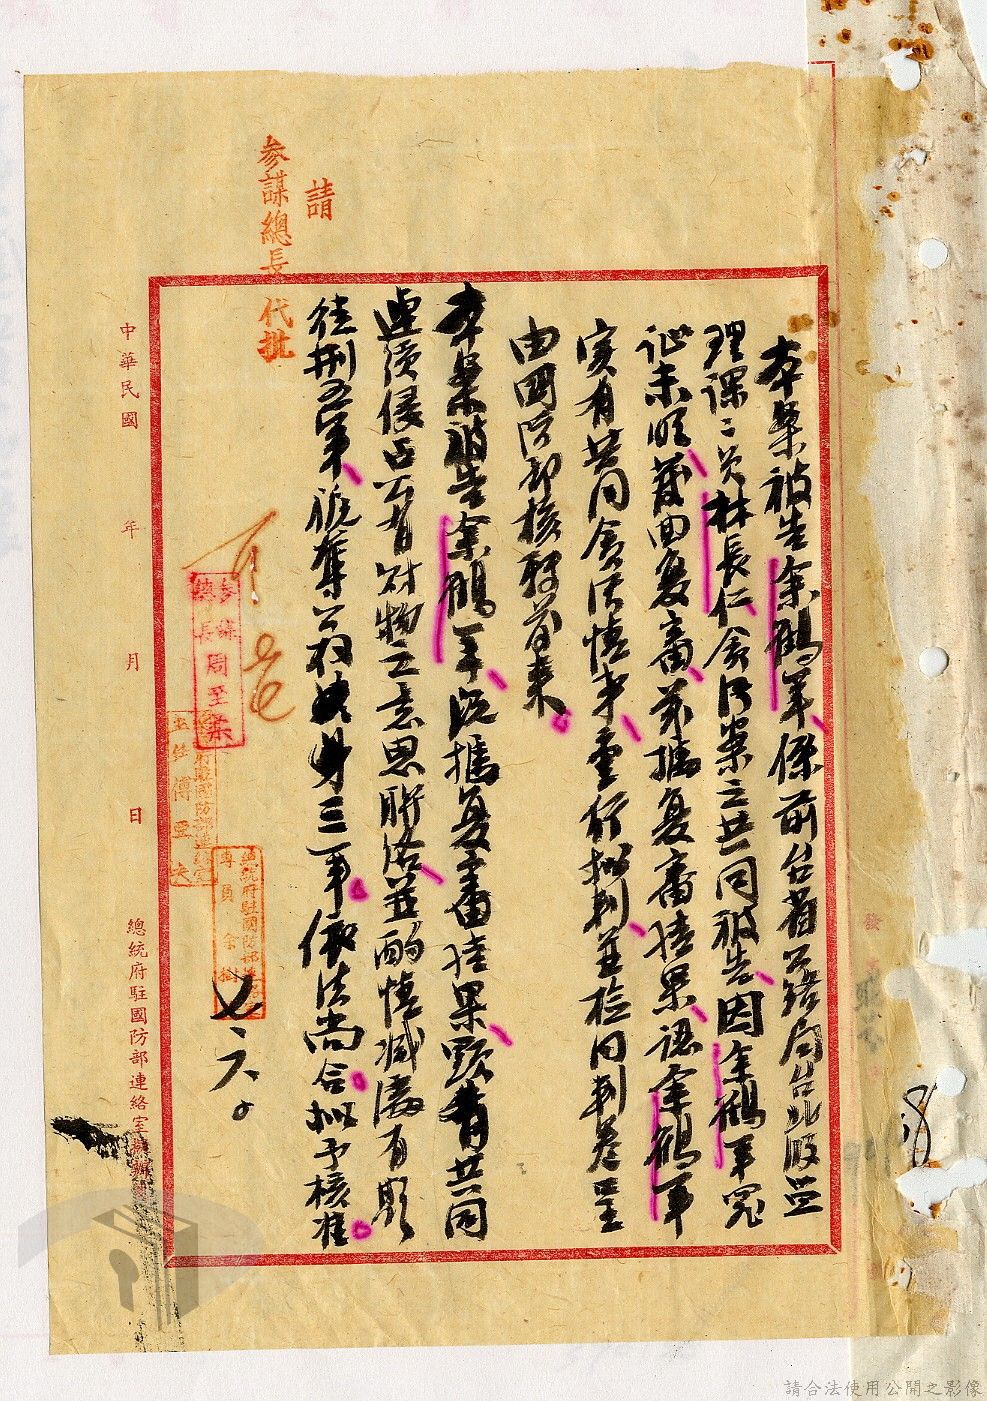 請
參謀總長代批
本案被告余鶴年係前台省公路局台北段監
理課課員林長仁貪污案之共同被告因余鶴年冤
証未明發回復審茲據復審結果認余鶴年
實有共同貪污情事重行擬判並檢同判卷呈
由國防部核轉前來
本案被告余鶴年既據復審結果顯有共同
連續侵占公有財物之意思聯絡並酌情減處有期
徒刑五年褫奪公權三年依法尚合擬予核准
可
七、六、
參謀總長周至柔
總統府駐國防部連絡室
主任傅亞夫
總統府駐國防部連絡室
專員余
中華民國 年 月 日
總統府駐國防部連絡室
發
請合法使用公開之影像